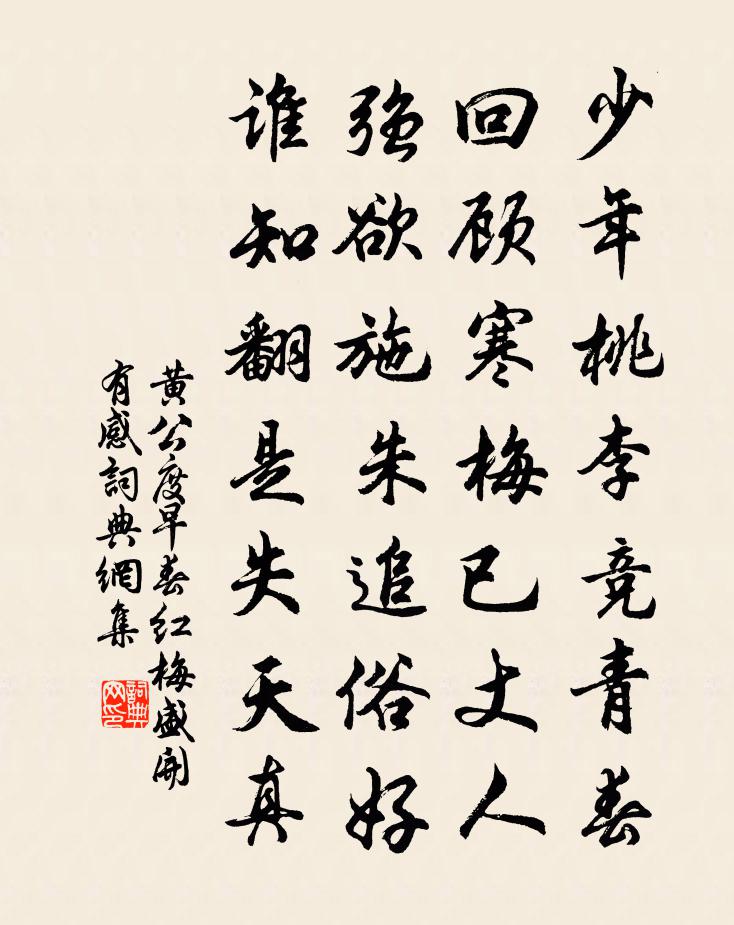 少年桃李竞青春
回顾寒梅已丈人
强欲施朱追俗好
谁知翻是失天真
黄公度早春红梅盛开
有感詞典網集
詞典
网印